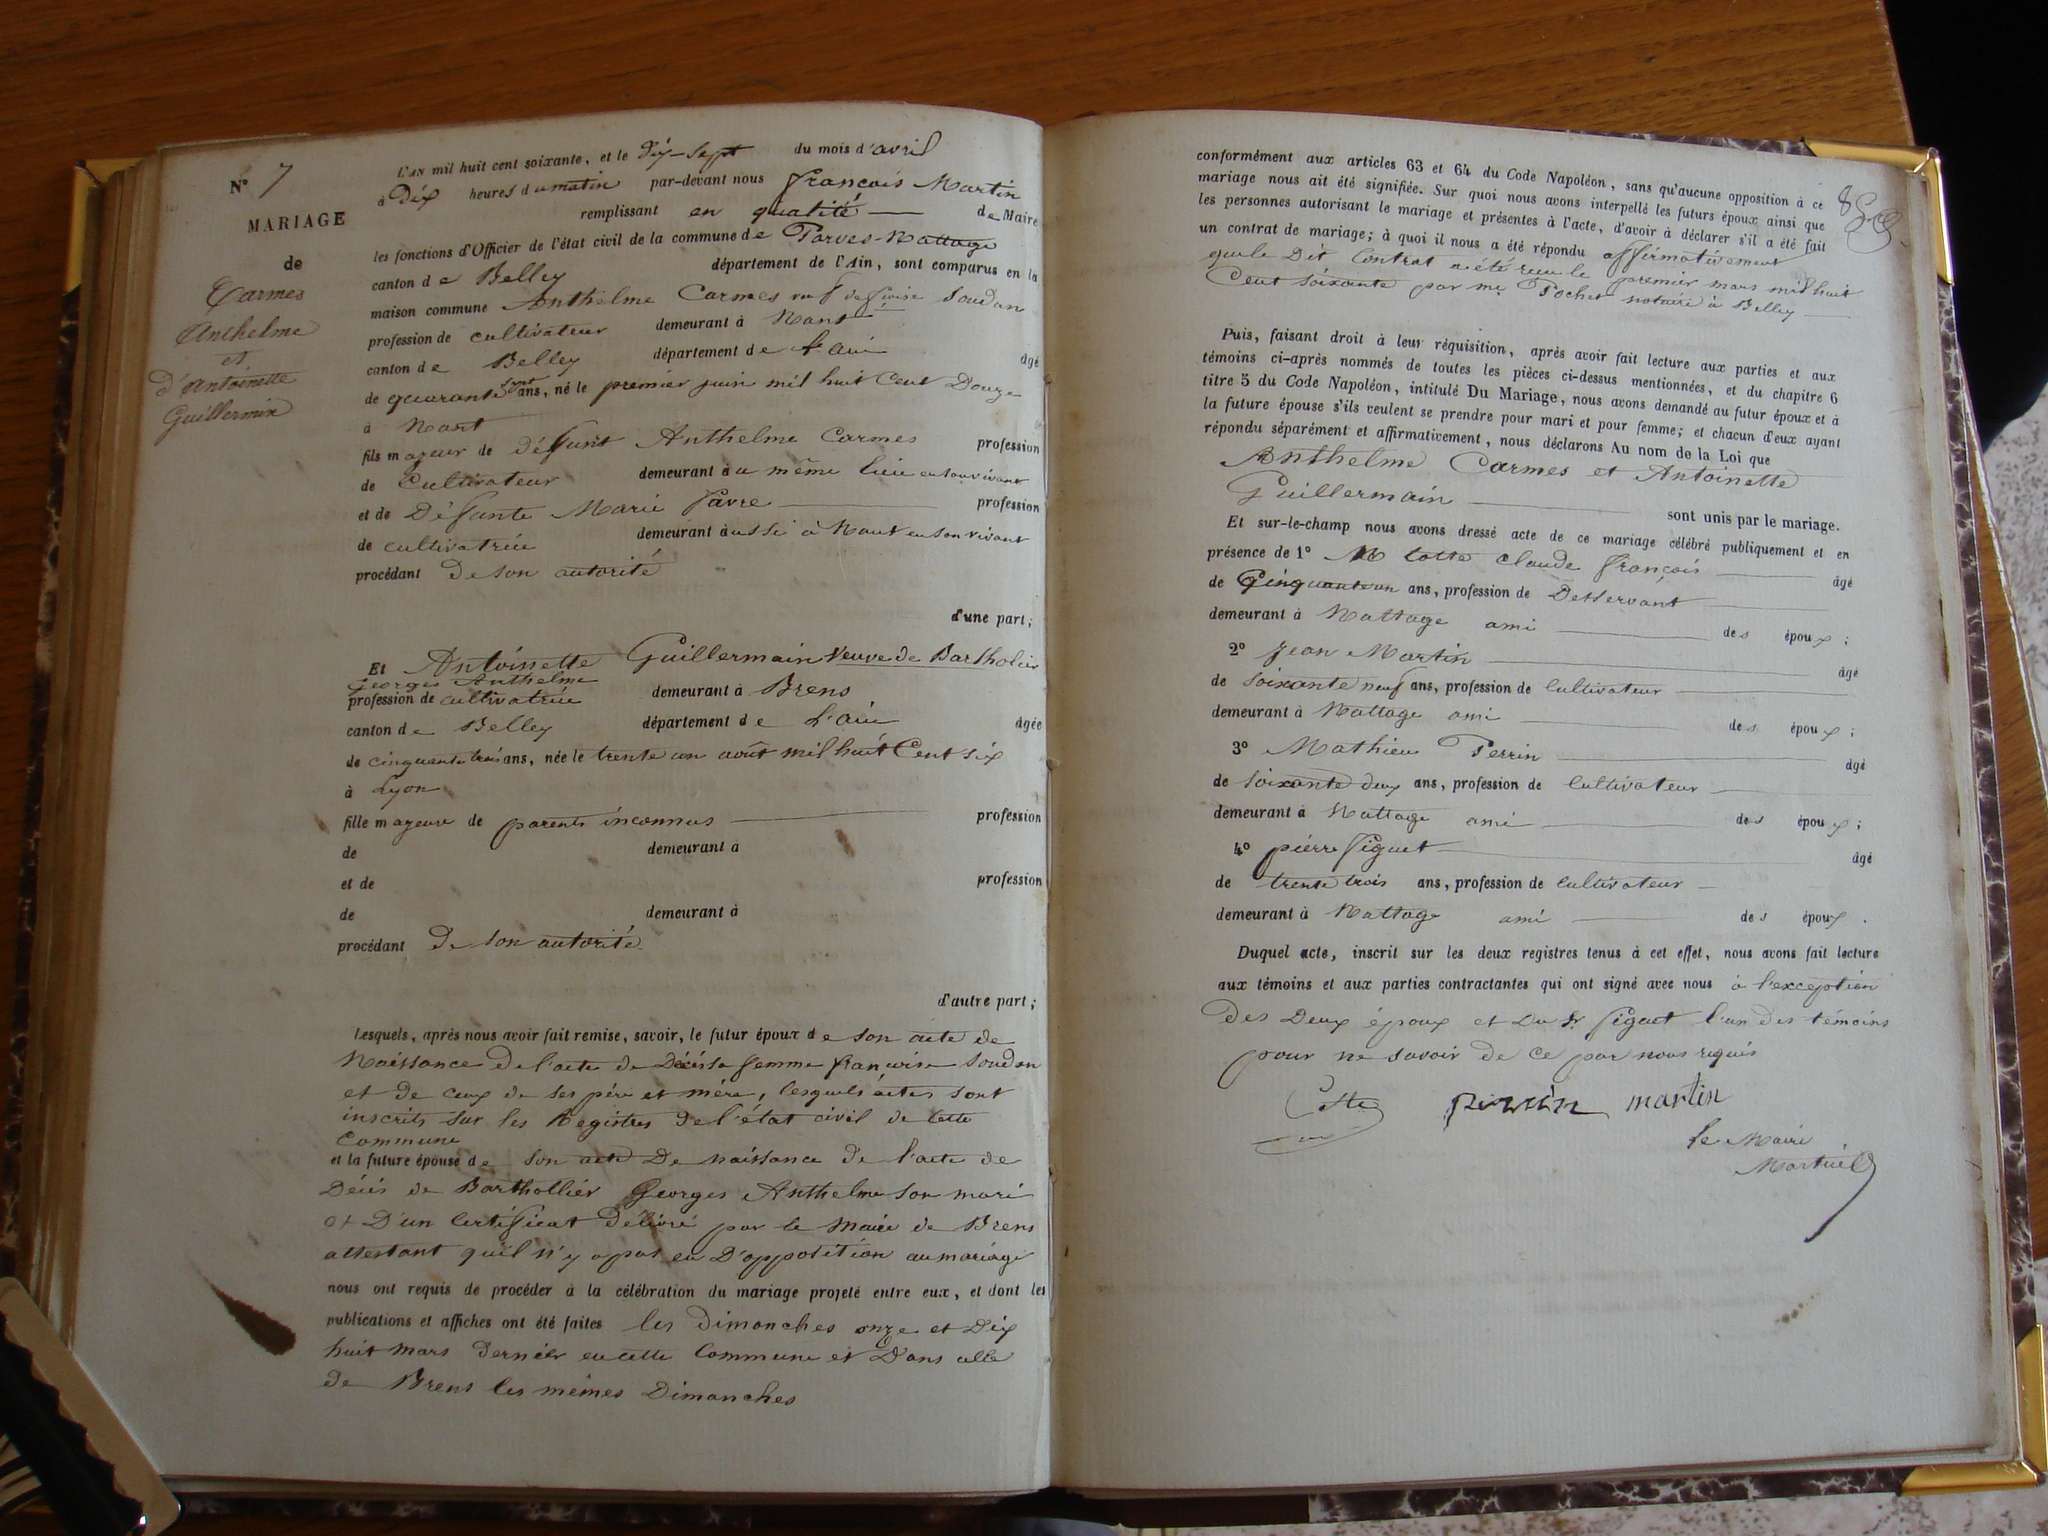 N° 7
MARIAGE
de
Carmes
Anthelme
et
d'Antoinette
Guillermin
L'AN mil huit cent soixante, et le dix-sept du mois d'avril
à Dix heures du matin par-devant nous françois Martin
remplissant en qualité de Maire
les fonctions d'Officier de l'état civil de la commune de Parves-Nattage
canton de Belley département de l'Ain, sont comparus en la
maison commune Anthelme Carmes Soudan
profession de cultivateur demeurant à Nant
canton de Belley département de l'ain âgé
de quarante sept ans, né le premier juin mil huit Cent Douze
à Nant
fils majeur de défunt Anthelme Carmes profession
de Cultivateur demeurant au même lieu en son vivant
et de Défunte Marie favre profession
de cultivatrice demeurant aussi à Nant en son vivant
procédant De son autorité
d'une part;
Et Antoinette Guillermain Veuve de Bartholier
Georges Anthelme
profession de cultivatrice demeurant à Brens
canton de Belley département de L'ain âgée
de cinquante trois ans, née le trente un août mil huit Cent six
à Lyon
fille majeure de parents inconnus profession
de demeurant à
et de profession
de demeurant à
procédant De son autorité
d'autre part;
Lesquels, après nous avoir fait remise, savoir, le futur époux de son acte de
Naissance de l'acte de Décès sa femme françoise Soudan
et de ceux de ses père et mère, lesquels actes sont
inscrits sur les Registres de l'état civil de cette
Commune
et la future épouse de son acte De naissance de l'acte de
Décès de Barthollier Georges Anthelme son mari
et D'un Certificat Délivré par le Maire de Brens
attestant qu'il n'y a pas eu D'opposition au mariage
nous ont requis de procéder à la célébration du mariage projeté entre eux, et dont les
publications et affiches ont été faites les Dimanches onze et Dix
huit mars Dernier en cette Commune et Dans celle
de Brens les mêmes Dimanches
conformément aux articles 63 et 64 du Code Napoléon, sans qu'aucune opposition à ce
mariage nous ait été signifiée. Sur quoi nous avons interpellé les futurs époux ainsi que
les personnes autorisant le mariage et présentes à l'acte, d'avoir à déclarer s'il a été fait
un contrat de mariage; à quoi il nous a été répondu affirmativement
que le Dit Contrat a été reçu le premier mars mil huit
Cent soixante par me Pochet notaire à Belley
Puis, faisant droit à leur réquisition, après avoir fait lecture aux parties et aux
témoins ci-après nommés de toutes les pièces ci-dessus mentionnées, et du chapitre 6
titre 5 du Code Napoléon, intitulé Du Mariage, nous avons demandé au futur époux et à
la future épouse s'ils veulent se prendre pour mari et pour femme; et chacun d'eux ayant
répondu séparément et affirmativement, nous déclarons Au nom de la Loi que
Anthelme Carmes et Antoinette
Guillermain sont unis par le mariage.
Et sur-le-champ nous avons dressé acte de ce mariage célébré publiquement et en
présence de 1° M Cotte claude françois âgé
de Cinquante un ans, profession de Desservant
demeurant à Nattage ami des époux;
2° Jean Martin âgé
de soixante neuf ans, profession de Cultivateur
demeurant à Nattage ami des époux;
3° Mathieu Perrin âgé
de soixante deux ans, profession de Cultivateur
demeurant à Nattage ami des époux;
4° pierre figuet âgé
de trente trois ans, profession de cultivateur
demeurant à Nattage ami des époux.
Duquel acte, inscrit sur les deux registres tenus à cet effet, nous avons fait lecture
aux témoins et aux parties contractantes qui ont signé avec nous à l'exception
Des Deux époux et Du Sr figuet l'un Des témoins
pour ne savoir de ce par nous requis
Cotte perrin martin
le Maire
Martin